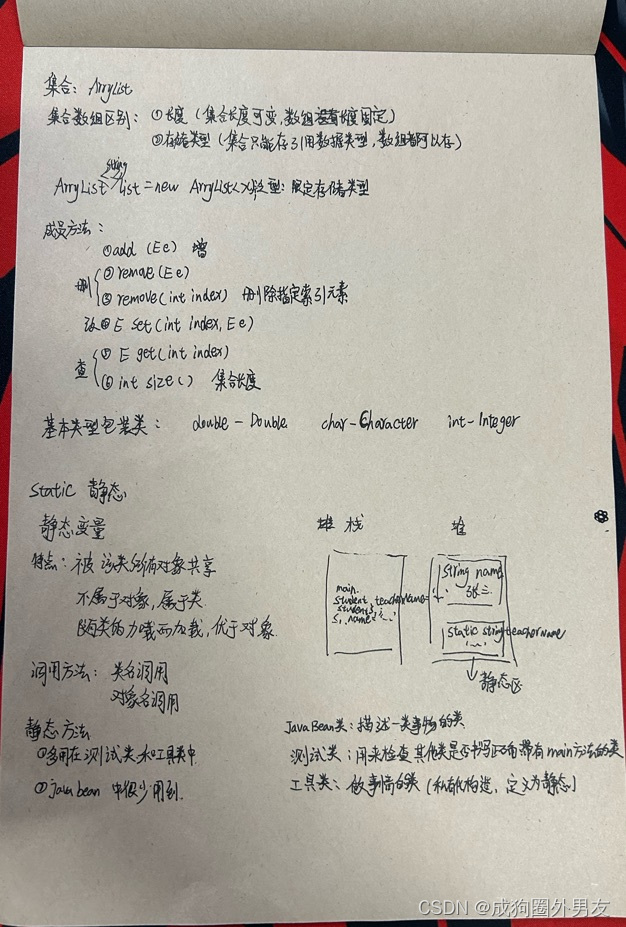 集合: ArryList
集合数组区别: ①长度 (集合长度可变,数组长度固定)
②存储类型 (集合只能存引用数据类型, 数组都可以存)
String
ArryList< >list = new ArryList<>(); 泛型: 限定存储类型
成员方法:
①add (E e) 增
删 ②remove(E e)
③remove(int index) 删除指定索引元素
改④E set(int index, E e)
查 ⑤ E get(int index)
⑥int size() 集合长度
基本类型包装类: double - Double char-Character int-Integer
static 静态
静态变量
特点: 被该类所有对象共享
不属于对象, 属于类
随类的加载而加载, 优于对象
调用方法: 类名调用
对象名调用
栈 堆
main.
student teachername=
string name
张三
static string teachername
静态区
静态方法
①多用在测试类和工具类中
②java bean 中很少用到.
Java Bean类: 描述一类事物的类
测试类: 用来检查其他类是否书写正确带有main方法的类
工具类: 做事情的类 (私有化构造, 定义为静态)
CSDN @成狗圈外男友